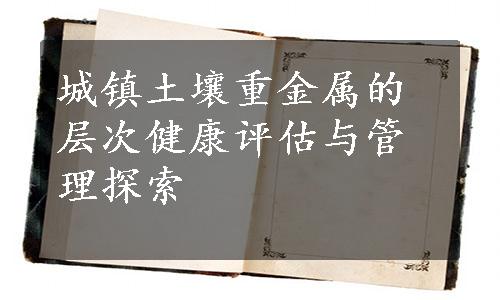 城镇土壤重金属的
层次健康评估与管
理探索